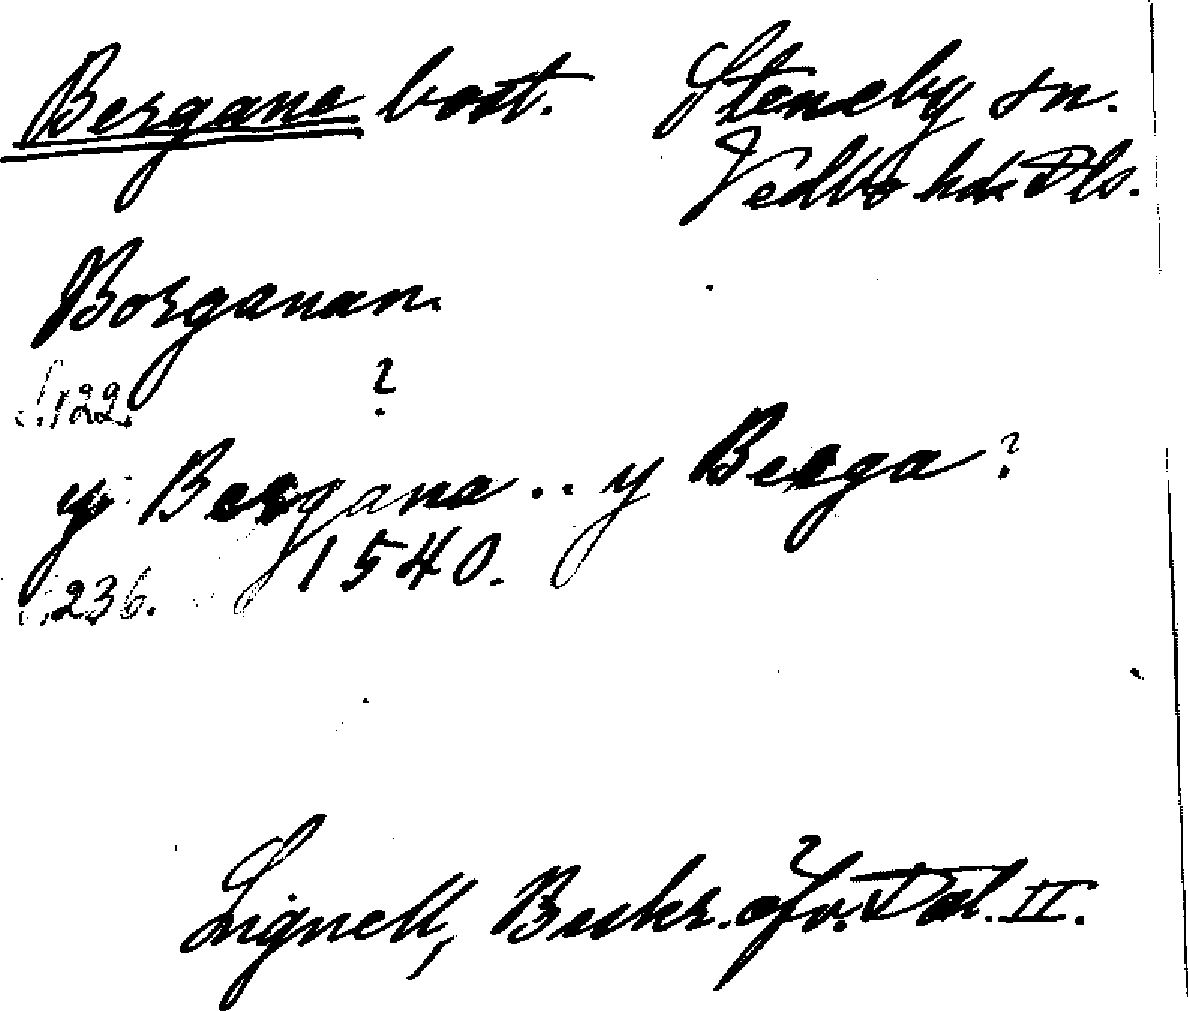 Bergane bost. Steneby sn.
Vedbo hd. Dls.
Borganan.
S. 122. ?
y Bergana .. y Berga?
1540.
S. 236.
Lignell, Beskr. öfv. Dal. II.